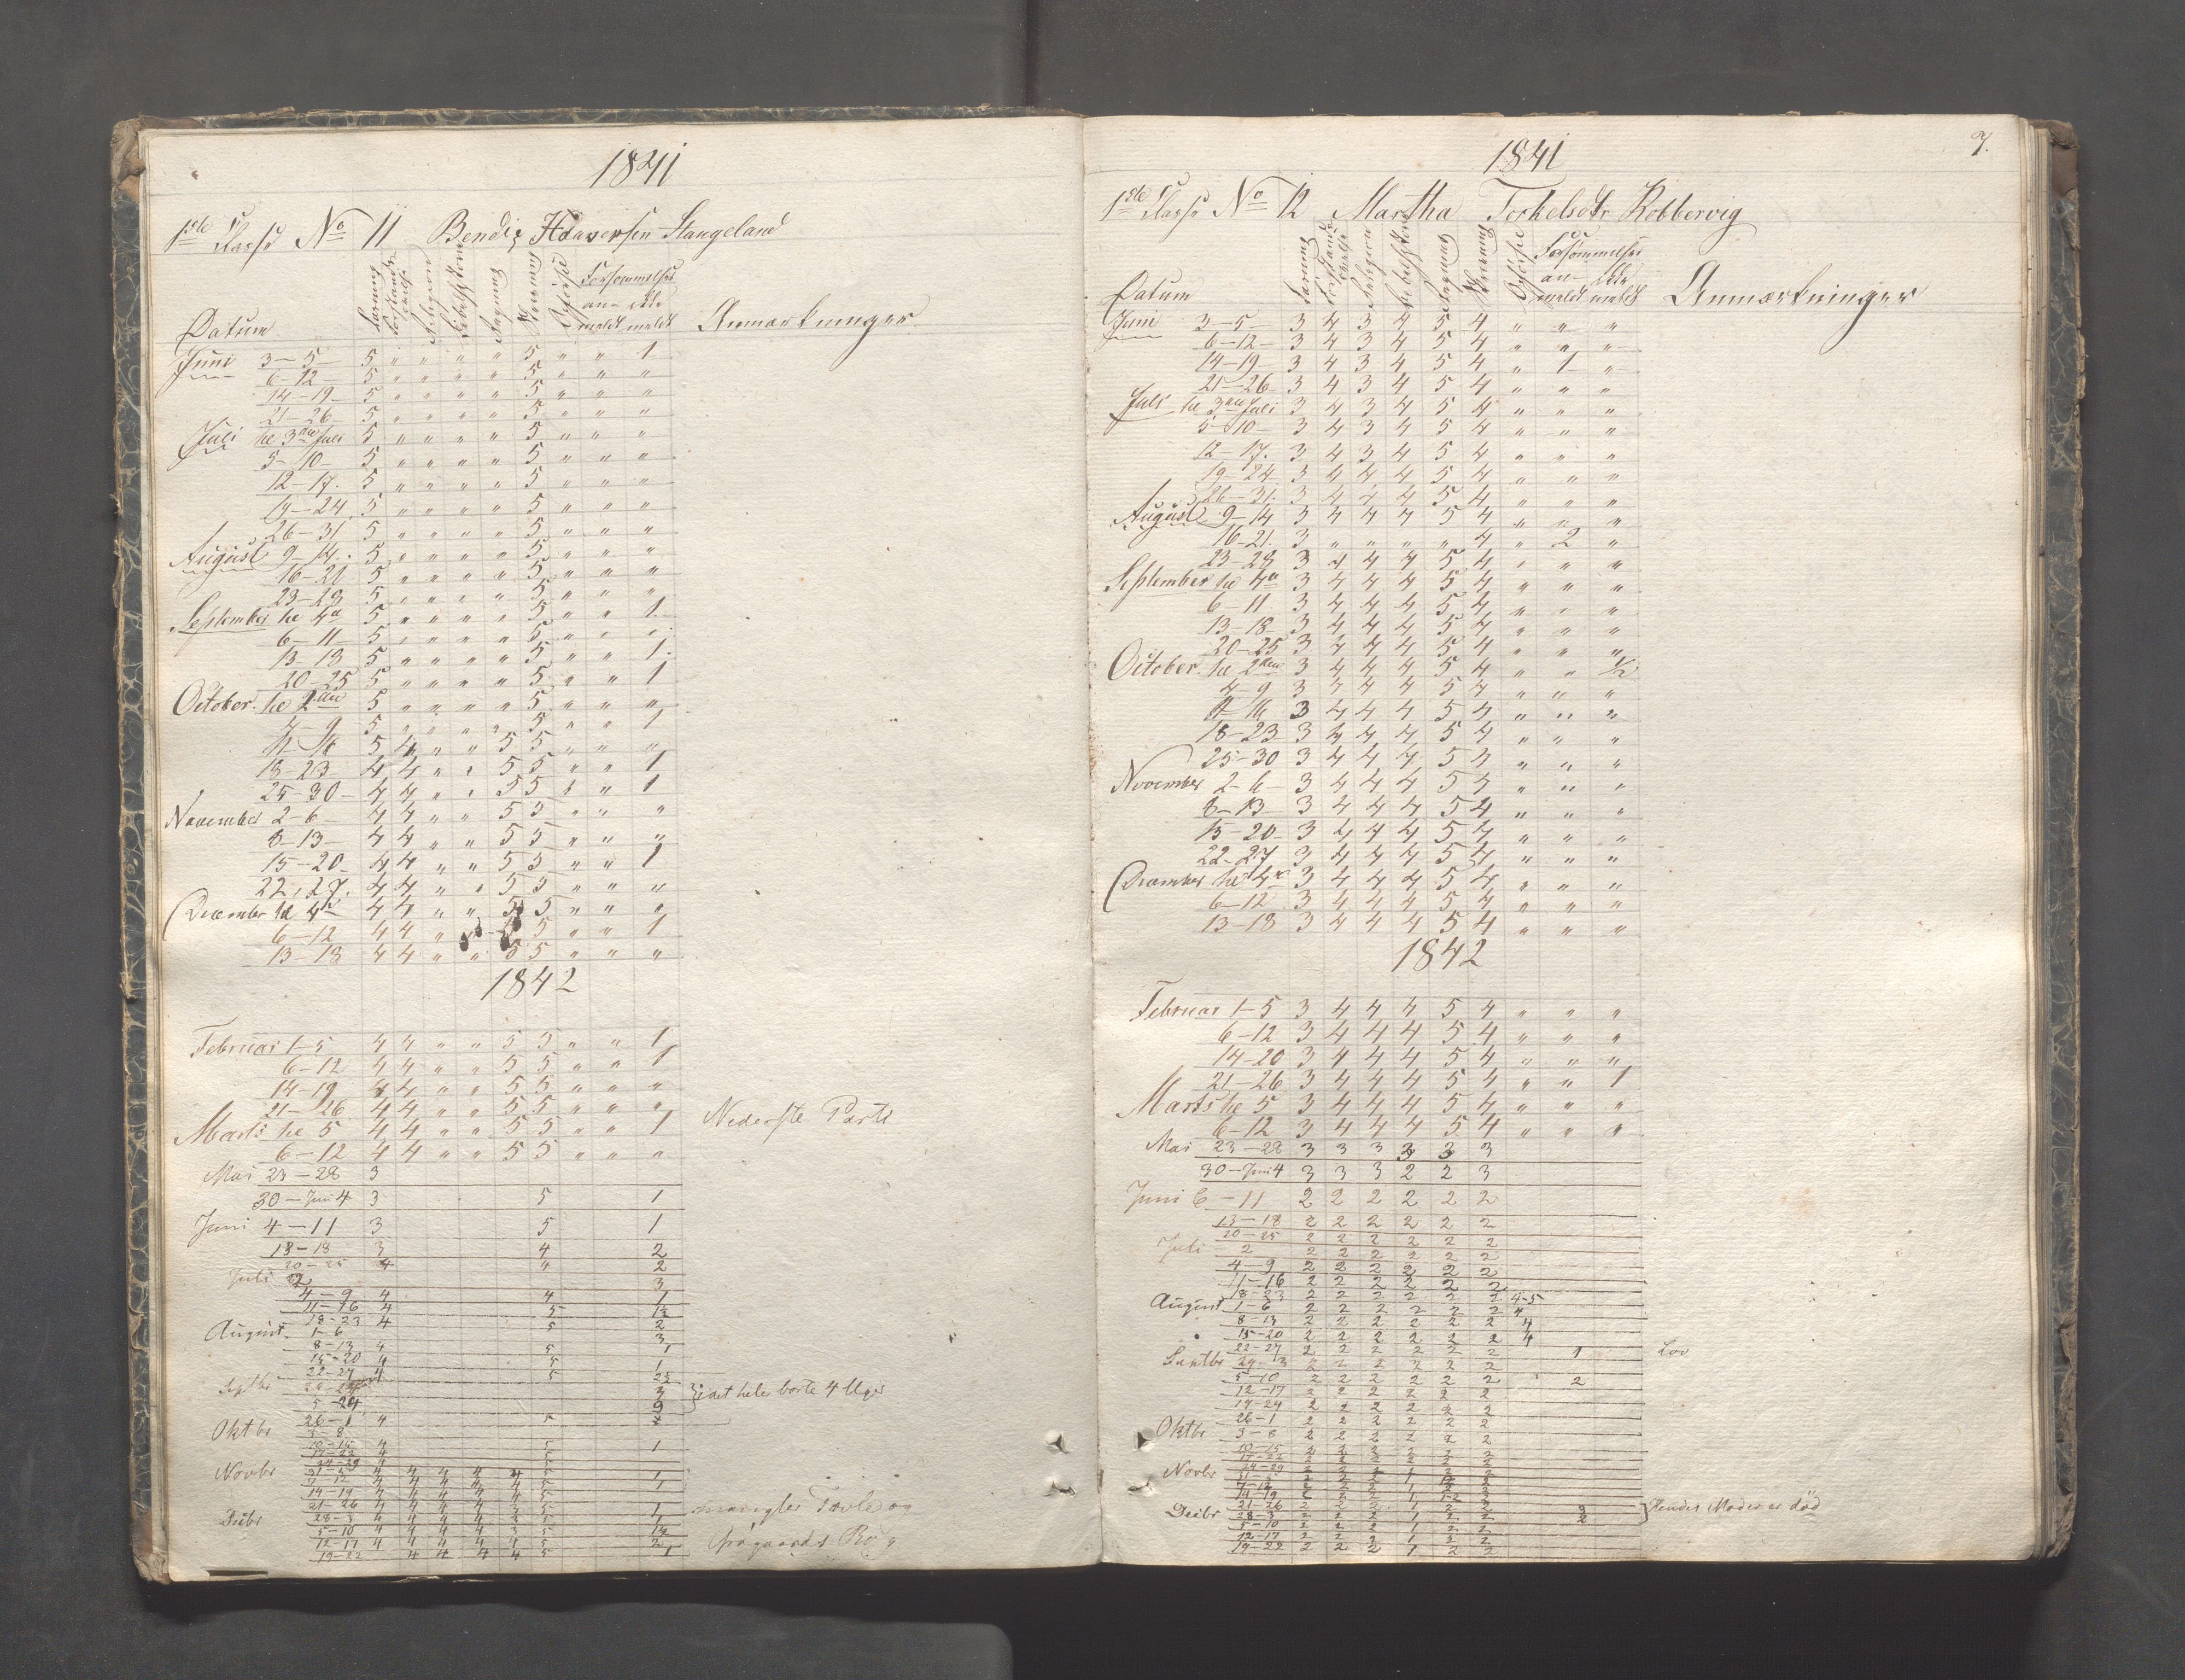 1841
1ste Classe No 11 Bendix Haaversen Stangeland
Datum Læsning Forstandsøvelse Religion Bibelhistorie Regning Skrivning Opførsel Forsømmelser an-meldt ikke meldt Anmærkninger
Juni 3-5 5 " " " " 5 " " 1
6-12 5 " " " " 5 " " "
14-19 5 " " " " 5 " " "
21-26 5 " " " " 5 " " "
Juli til 3die Juli 5 " " " " 5 " " "
5-10 5 " " " " 5 " " "
12-17. 5 " " " " 5 " " "
19-24 5 " " " " 5 " " "
26-31 5 " " " " 5 " " "
August 9-14. 5 " " " " 5 " " "
16-21 5 " " " " 5 " " "
23-28 5 " " " " 5 " " "
September til 4de 5 " " " " 5 " " 1
6-11 5 " " " " 5 " " "
13-18 5 " " " " 5 " " 1.
20-25 5 " " " " 5 " " 1
October til 2den 5 " " " " 5 " " "
4-9 5 " " " " 5 " " 1
11-16 5 4 " " 5 5 " " "
18-23 4 4 " " 5 5 " " 1
25-30 4 4 " " 5 5 " " 1
November 2-6 4 4 " " 5 5 " " "
8-13 4 4 " " 5 5 " " "
15-20 4 4 " " 5 5 " " 1
22-27. 4 4 " " 5 5 " " "
December til 4de 4 4 " " 5 5 " " "
6-12 4 4 " " 5 5 " " 1
13-18 4 4 " " 5 5 " " "
1842
Februar 1-5 4 4 " " 5 5 " " 1
6-12 4 4 " " 5 5 " " 1
14-19 4 4 " " 5 5 " " "
21-26 4 4 " " 5 5 " " "
Marts til 5 4 4 " " 5 5 " " 1 Nederste Parti
6-12 4 4 " " 5 5 " " "
Mai 23-28 3
30-Juni 4 3 5 1
Juni 4-11 3 5 1
13-18 3 4 2
20-25 4 4 2
Juli 2 3
4-9 4 4 1
11-16 4 5 1½
18-23 4 5 2
August 1-6 3
8-13 4 5 1
15-20 4 5 1
22-27 4 5 2½
Septbr 3
5-24 9 } i det hele borte 4 Uger
26-1 4 5
Oktbr 3-8
10-15 4 5 1
17-22 4 5
24-29 4 5
Novbr 31-5 4 4 4 4 4 5 1
7-12 4 4 4 4 4 5 1
14-19 4 4 4 4 4 5
21-26 4 4 4 4 4 5 1 mangler Tavle og
Decbr 28-3 4 4 4 4 3 5 1
5-10 4 4 4 4 3 5 1½
12-17 4 4 4 4 4 5 2
19-22 4 4 4 4 5 1
7.
1841
1ste Classe No 12 Martha Torkelsdtr Kobbervig
Datum Læsning Forstandsøvelse Religion Bibelhistorie Regning Skrivning Opførsel Forsømmelser an-meldt ikke meldt Anmærkninger
Juni 3-5 3 4 3 4 5 4 " " "
6-12 3 4 3 4 5 4 " " "
14-19 3 4 3 4 5 4 " 1 "
21-26 3 4 3 4 5 4 " " "
Juli til 3die Juli 3 4 3 4 5 4 " " "
5-10 3 4 3 4 5 4 " " "
12-17. 3 4 3 4 5 4 " " "
19-24 3 4 4 4 5 4 " " "
26-31. 3 4 4 4 5 4 " " "
August 9-14 3 4 4 4 5 4 " " "
16-21. 3 " " " " 4 " 2 "
23-28 3 4 4 4 5 4 " " "
September til 4de 3 4 4 4 5 4 " " "
6-11 3 4 4 4 5 4 " " "
13-18 3 4 4 4 5 4 " " "
20-25 3 4 4 4 5 4 " " "
October. til 2den 3 4 4 4 5 4 " " ½
4-9 3 4 4 4 5 4 " " "
11-16 3 4 4 4 5 4 " " "
18-23 3 4 4 4 5 4 " " "
25-30 3 4 4 4 5 4 " " "
November 2-6 3 4 4 4 5 4 " " "
8-13 3 4 4 4 5 4 " " "
15-20 3 4 4 4 5 4 " " "
22-27 3 4 4 4 5 4 " " "
December til 4de 3 4 4 4 5 4 " " "
6-12 3 4 4 4 5 4 " " "
13-18 3 4 4 4 5 4 " " "
1842
Februar 1-5 3 4 4 4 5 4 " " "
6-12 3 4 4 4 5 4 " " "
14-20 3 4 4 4 5 4 " " "
21-26 3 4 4 4 5 4 " " 1
Marts til 5 3 4 4 4 5 4 " " "
6-12 3 4 4 4 5 4 " " "
Mai 23-28 3 3 3 3 3 3
30-Juni 4 3 3 3 2 2 3
Juni 6-11 2 2 2 2 2 2
13-18 2 2 2 2 2 2
20-25 2 2 2 2 2 2
Juli -2 2 2 2 2 2 2
4-9 2 2 2 2 2 2
11-16 2 2 2 2 2 2
18-23 2 2 2 2 2 2 4-5
August 1-6 2 2 2 2 2 2 4
8-13 2 2 2 2 2 2 4
15-20 2 2 2 2 2 2 4
22-27 2 2 2 2 2 2 1 Lov
Septbr 29-3 2 2 2 2 2 2
5-10 2 2 2 2 2 2 2
12-17 2 2 2 2 2 2
19-24 2 2 2 2 2 2
26-1 2 2 2 2 2 2
Oktbr 3-8 2 2 2 2 2 2
10-15 2 2 2 2 2 2
17-22 2 2 2 2 2 2
24-29 2 2 2 2 2 2
Novbr 31-5
7-12
14-19
21-26 2 2 2 1 2 2 3 } Hendes Moder er død
Decbr 28-3 2 2 2 1 2 2 2
5-10 2 2 2 1 2 2
12-17 2 2 2 1 2 2
19-22 2 2 2 1 2 2